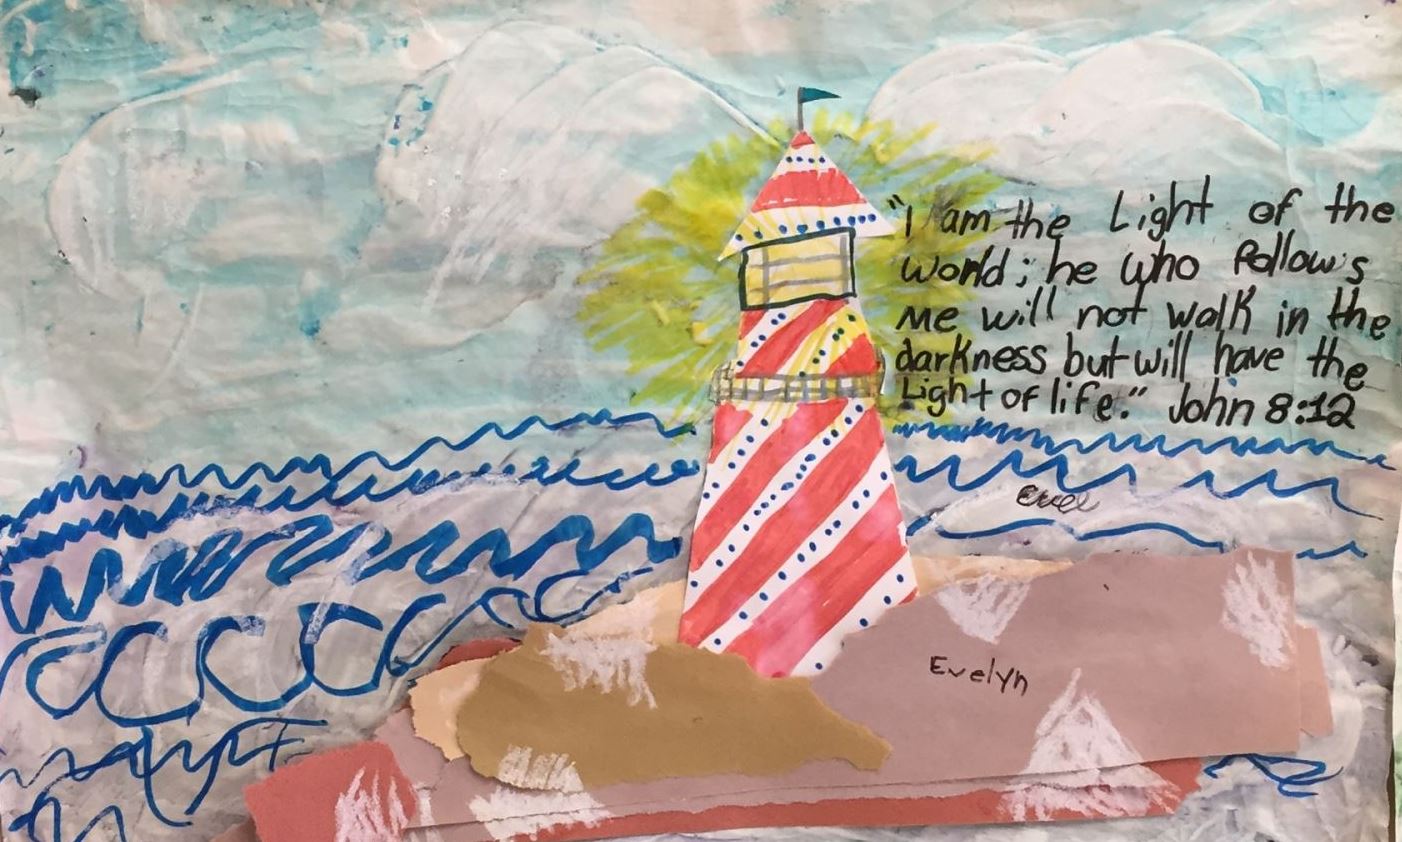 "I am the Light of the
world; he who follows
me will not walk in the
darkness but will have the
Light of life." John 8:12
Evelyn